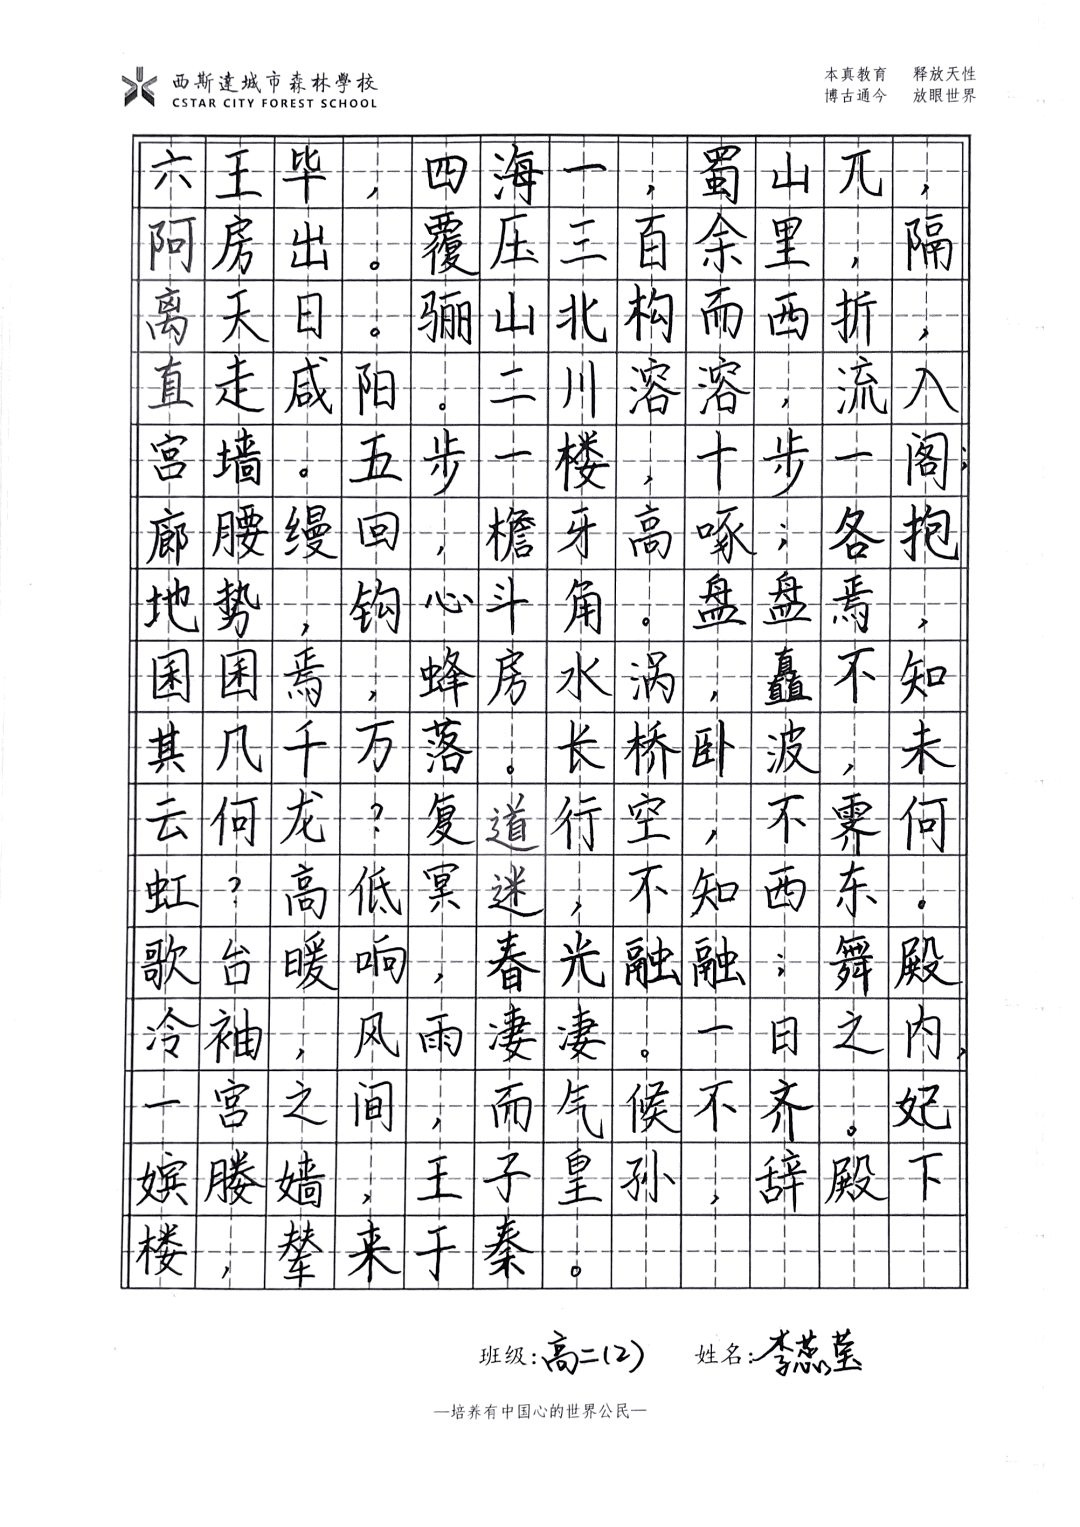 西斯达城市森林學校
CSTAR CITY FOREST SCHOOL
本真教育 释放天性
博古通今 放眼世界
六王毕，四海一，蜀山兀，
阿房出。覆压三百余里，隔
离天日。骊山北构而西折，
直走咸阳。二川溶溶，流入
宫墙。五步一楼，十步一阁；
廊腰缦回，檐牙高啄；各抱
地势，钩心斗角。盘盘焉，
囷囷焉，蜂房水涡，矗不知
其几千万落。长桥卧波，未
云何龙？复道行空，不霁何
虹？高低冥迷，不知西东。
歌台暖响，春光融融；舞殿
冷袖，风雨凄凄。一日之内，
一宫之间，而气候不齐。妃
嫔媵嫱，王子皇孙，辞殿下
楼，辇来于秦。
班级：高二（2） 姓名：李蕊莹
—培养有中国心的世界公民—